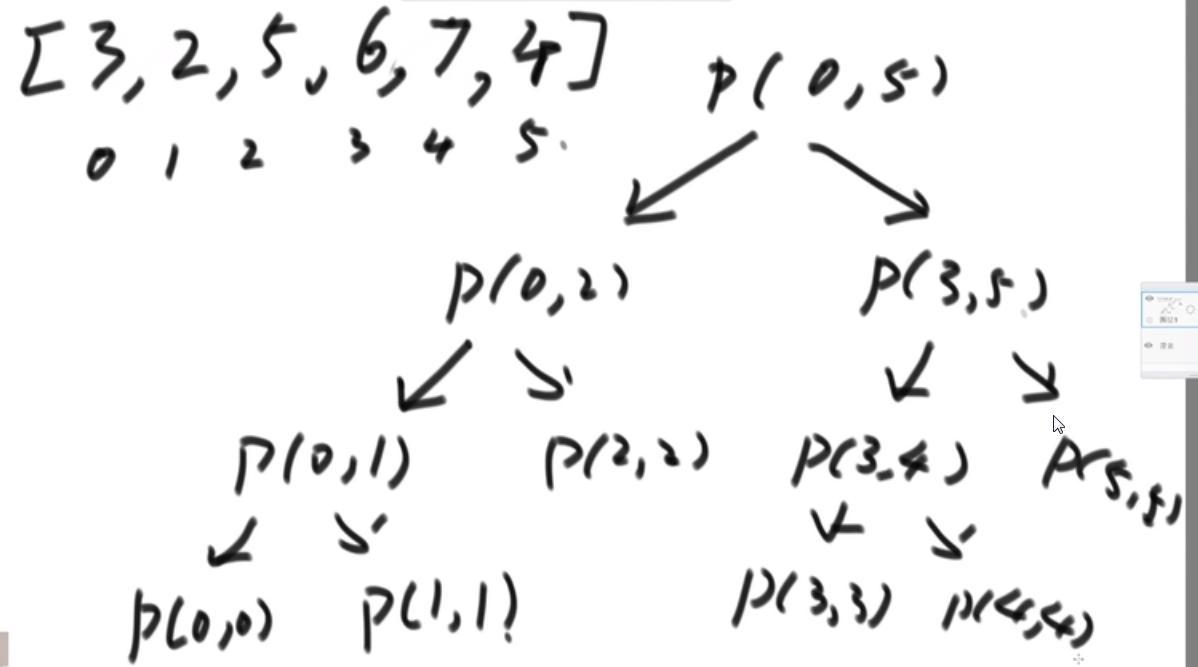 [3,2,5,6,7,4]
p(0,5)
0 1 2 3 4 5
p(0,2) p(3,5)
p(0,1) p(2,2) p(3,4) p(5,5)
p(0,0) p(1,1) p(3,3) p(4,4)